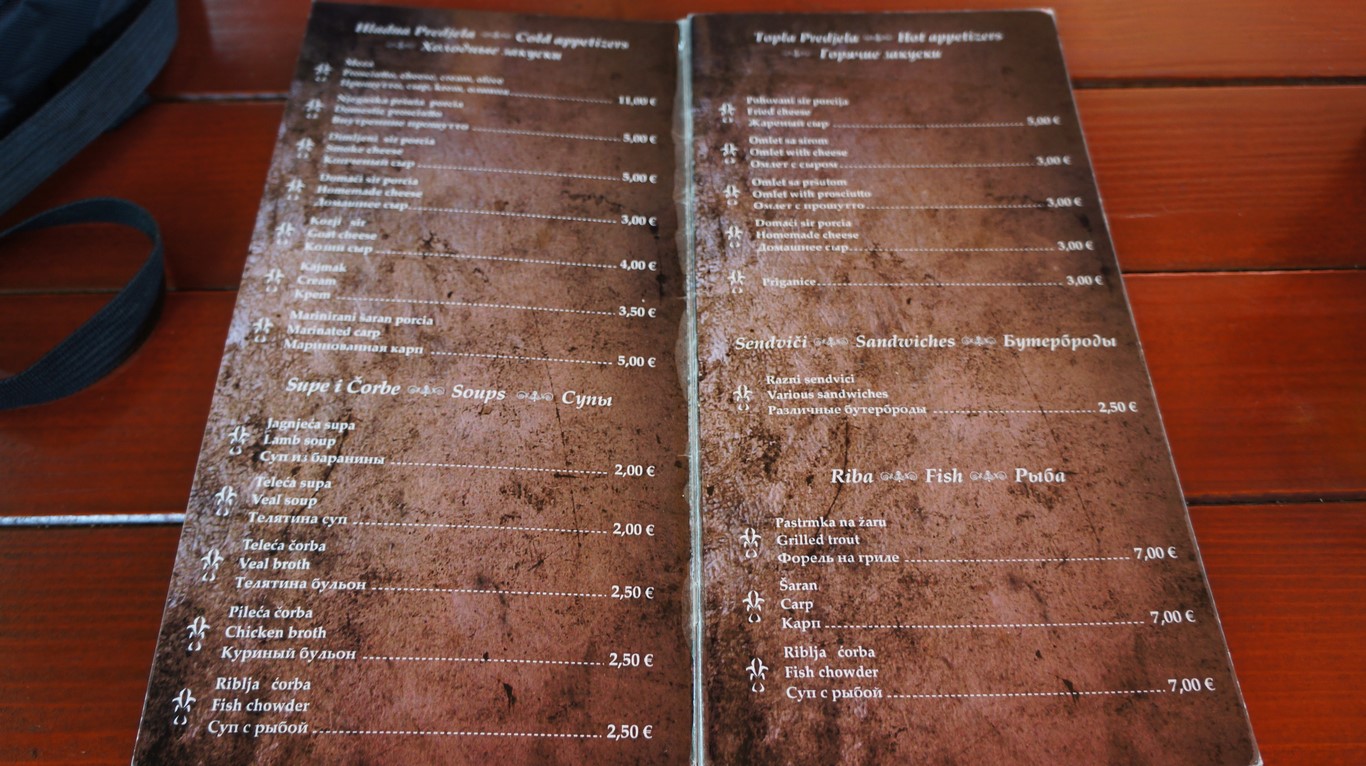 Hladna Predjela Cold appetizers
Холодные закуски
Meza
Prosciutto, cheese, cream, olive
Прошутто, сыр, крем, оливки 11,00 €
Njeguška pršuta porcia
Domestic prosciutto
прошутто 5,00 €
Dimljeni sir porcia
Smoke cheese
Копченый сыр 5,00 €
Domaći sir porcia
Homemade cheese
Домашнее сыр 3,00 €
Kozji sir
Goat cheese
Козий сыр 4,00 €
Kajmak
Cream
Крем 3,50 €
Marinirani šaran porcia
Marinated carp
Маринованная карп 5,00 €
Supe i Čorbe Soups Супы
Jagnjeća supa
Lamb soup
Суп из баранины 2,00 €
Teleća supa
Veal soup
Телятина суп 2,00 €
Teleća čorba
Veal broth
Телятина бульон 2,50 €
Pileća čorba
Chicken broth
Куриный бульон 2,50 €
Riblja ćorba
Fish chowder
Суп с рыбой 2,50 €
Topla Predjela Hot appetizers
Горячие закуски
Pohovani sir porcija
Fried cheese
Жареный сыр 5,00 €
Omlet sa sirom
Omlet with cheese
Омлет с сыром 3,00 €
Omlet sa pršutom
Omlet with prosciutto
Омлет с прошутто 3,00 €
Domaći sir porcia
Homemade cheese
Домашнее сыр 3,00 €
Priganice 3,00 €
Sendviči Sandwiches Бутерброды
Razni sendvici
Various sandwiches
Различные бутерброды 2,50 €
Riba Fish Рыба
Pastrmka na žaru
Grilled trout
Форель на гриле 7,00 €
Šaran
Carp
Карп 7,00 €
Riblja ćorba
Fish chowder
Суп с рыбой 7,00 €